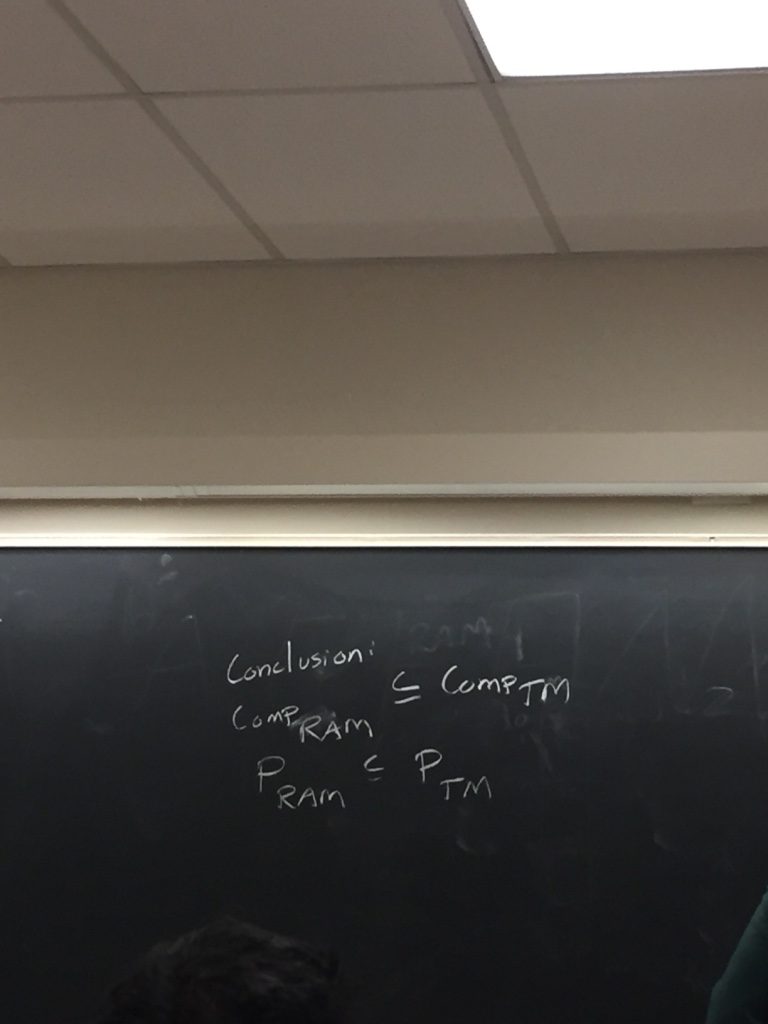 Conclusion:
Comp RAM ⊆ Comp TM
P RAM ⊆ P TM